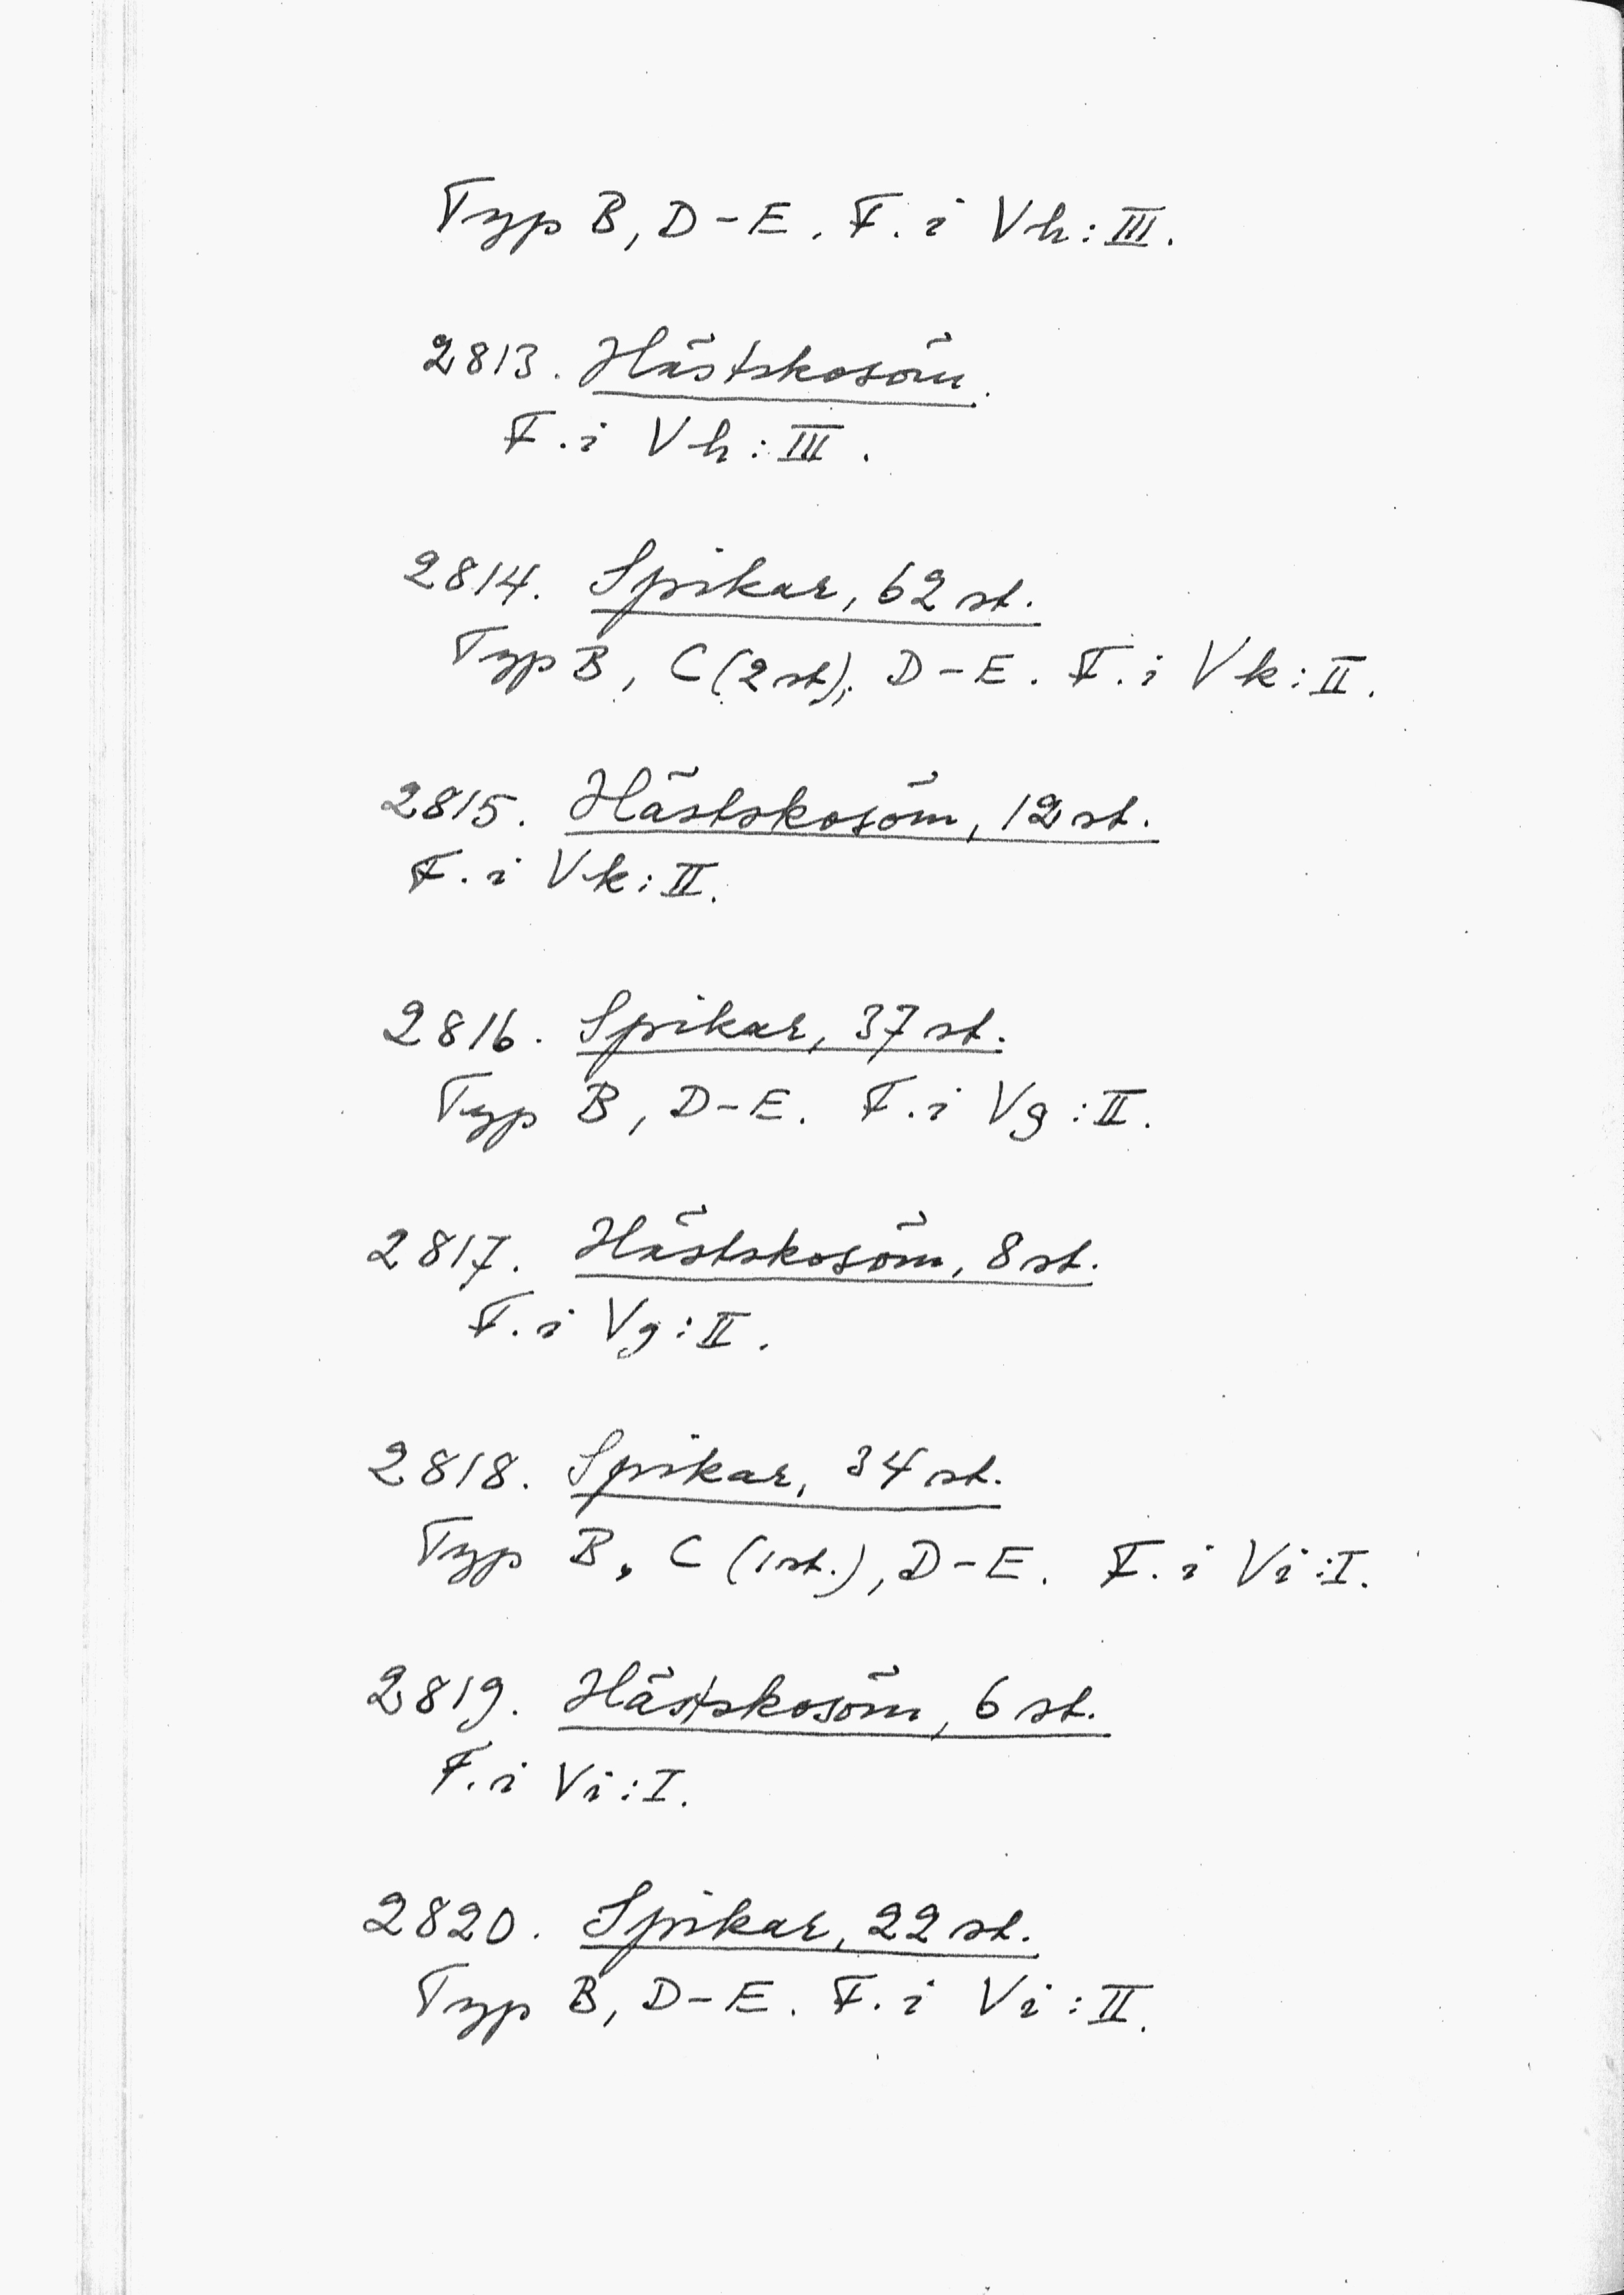 Typ B, D-E. F.i Vh:III.
2813. Hästskosöm.
F.i Vh:III.
2814. Spikar, 62 st.
Typ B, C (2 st), D-E. F.i Vk:II.
2815. Hästskosöm, 12 st.
F.i Vk:II.
2816. Spikar, 37 st.
Typ B, D-E. F.i Vg:II.
2817. Hästskosöm, 8 st.
F.i Vg:II.
2818. Spikar, 34 st.
Typ B, C (1 st.), D-E. F.i Vi:I.
2819. Hästskosöm, 6 st.
F.i Vi:I.
2820. Spikar, 22 st.
Typ B, D-E. F.i Vi:II.